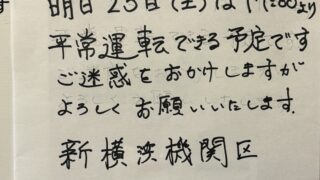 明日23日(土)は11:00より
平常運転できる予定です
ご迷惑をおかけしますが
よろしくお願いいたします.
新横浜機関区